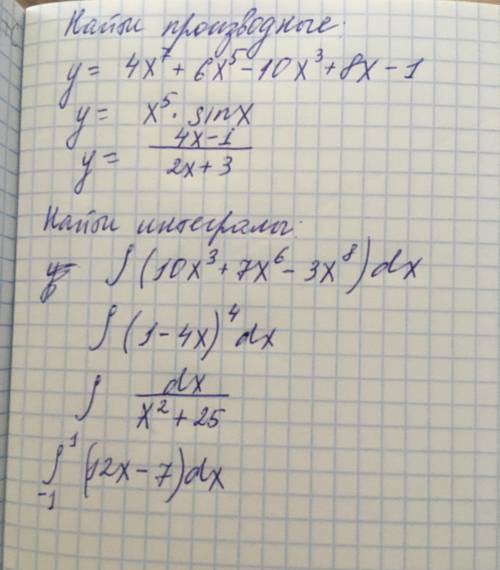 Найти производные:
y = 4x⁷ + 6x⁵ - 10x³ + 8x - 1
y = x⁵ · sinx
y = (4x-1)/(2x+3)
Найти интегралы:
∫(10x³ + 7x⁶ - 3x⁸)dx
∫(1-4x)⁴dx
∫ dx/(x² + 25)
∫₋₁¹(12x - 7)dx